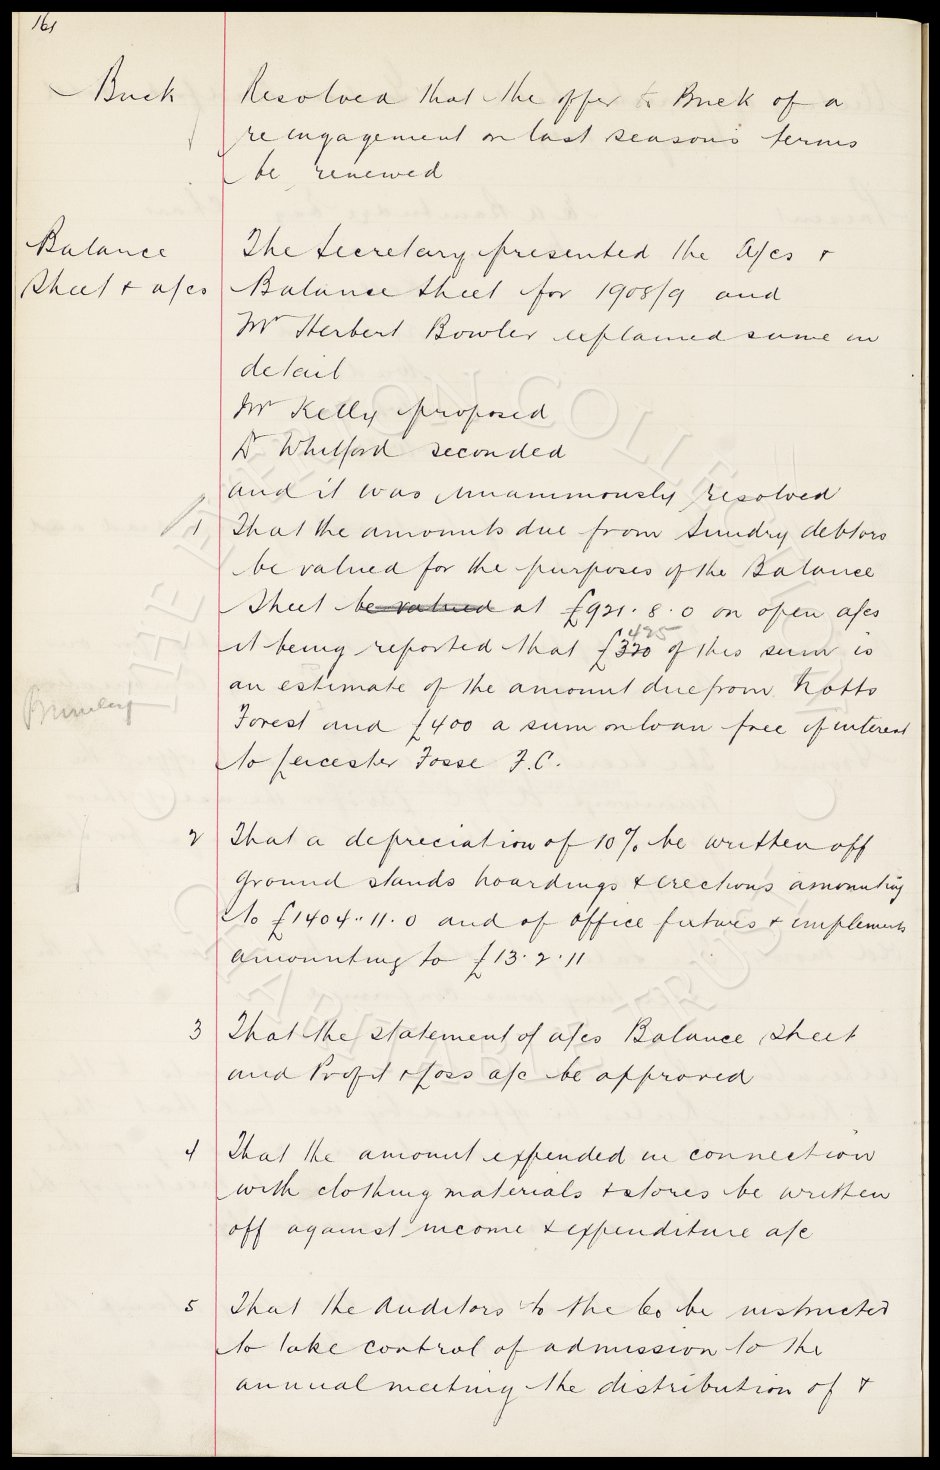 161
Buck
Resolved that the offer to Buck of a
re engagement on last season's terms
be renewed
Balance
Sheet & a/cs
The Secretary presented the a/cs &
Balance Sheet for 1908/9 and
Mr Herbert Bowler explained same in
detail
Mr Kelly proposed
Dr Whitford seconded
and it was unanimously resolved
1 That the amounts due from Sundry debtors
be valued for the purposes of the Balance
Sheet be valued at £921. 8. 0 on open a/cs
425
it being reported that £320 of this sum is
an estimate of the amount due from Notts
Forest and £400 a sum on loan free of interest
to Leicester Fosse F.C.
2 That a depreciation of 10% be written off
ground stands hoardings & erections amounting
to £1404.. 11. 0 and of office fixtures & implements
amounting to £13. 2. 11
3 That the statement of a/cs Balance Sheet
and Profit & Loss a/c be approved
4 That the amount expended in connection
with clothing materials & stores be written
off against income & expenditure a/c
5 That the Auditors to the Co be instructed
to take control of admission to the
annual meeting the distribution of &